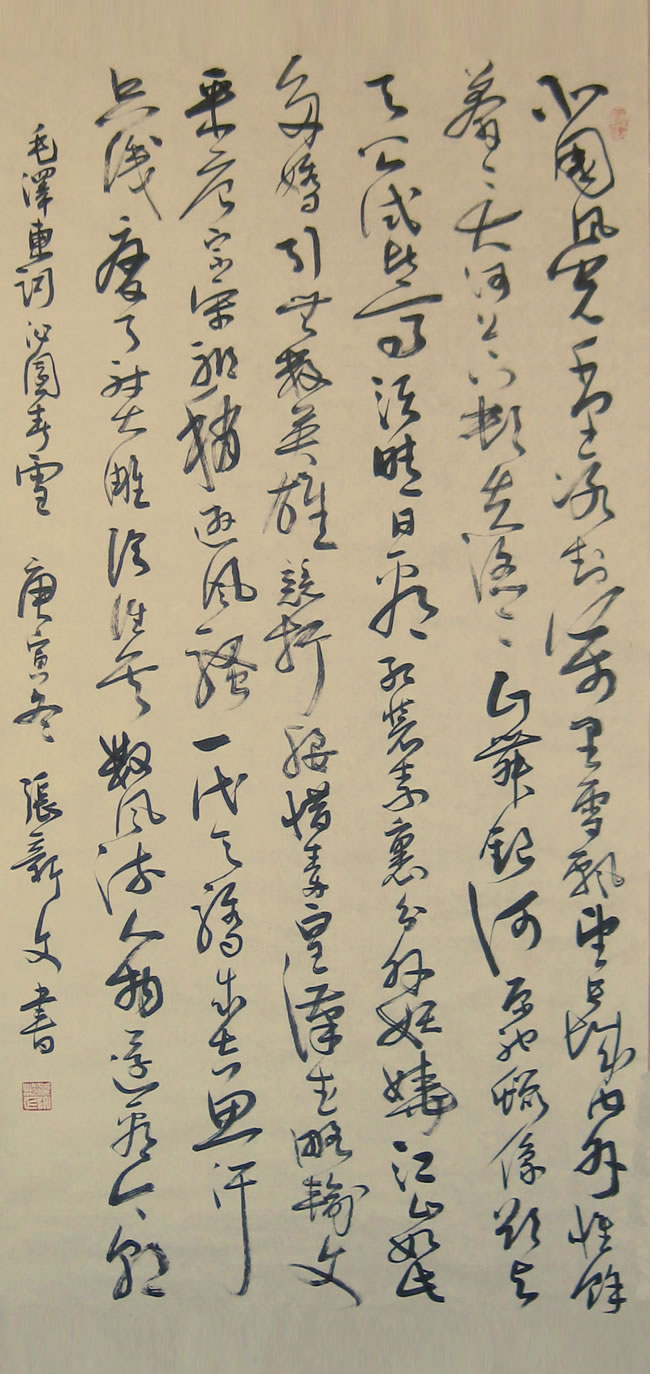 北國風光千里冰封萬里雪飄望長城内外惟餘
莽莽大河上下頓失滔滔山舞銀河原馳蠟像欲与
天公試比高須晴日看紅裝素裹分外妖嬈江山如此
多嬌引無數英雄競折腰惜秦皇漢武略輸文
采唐宗宋祖稍遜風騷一代天驕成吉思汗
只識彎弓射大雕俱往矣數風流人物還看今朝
毛澤東詞沁園春雪 庚寅冬 張新文書